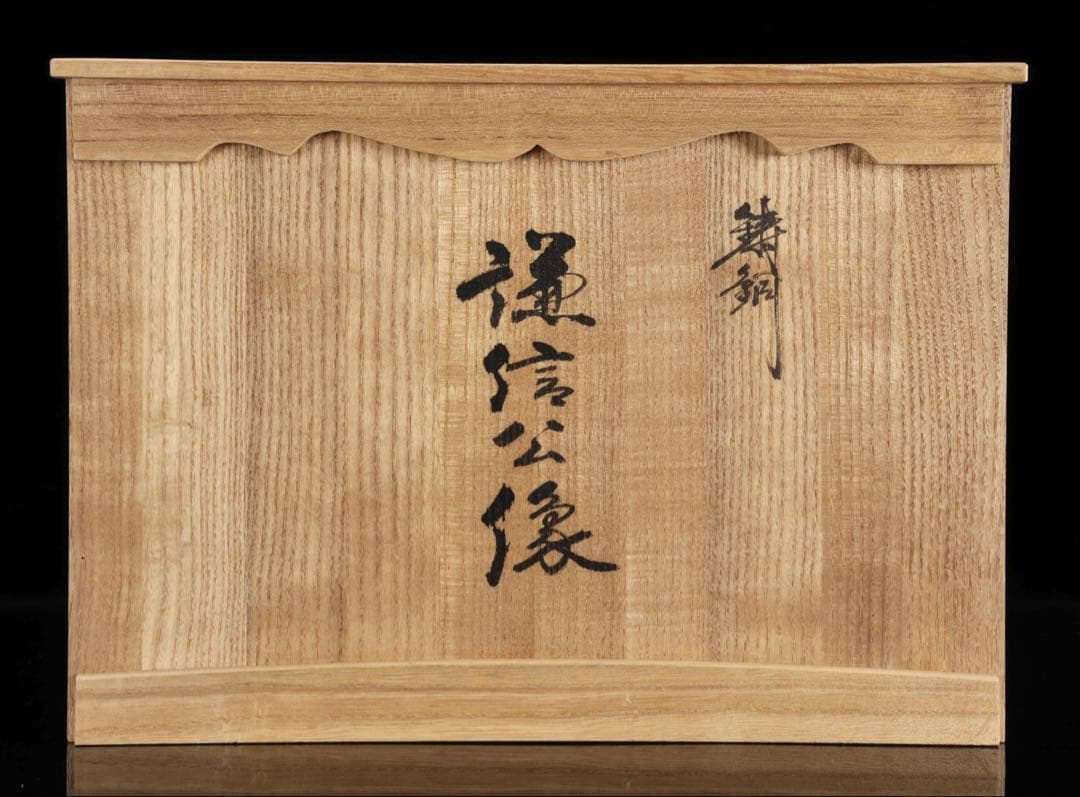 鋳銅
謙信公像